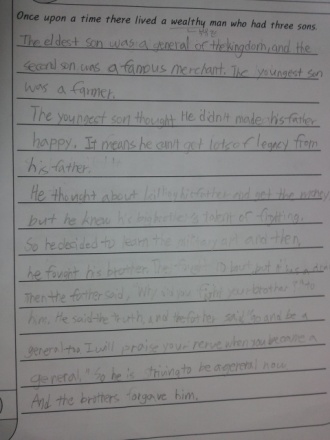 Once upon a time there lived a wealthy man who had three sons.
The eldest son was a general of the kingdom, and the
second son was a famous merchant. The youngest son
was a farmer.
The youngest son thought He didn't made his father
happy. It means he can't get lots of legacy from
his father.
He thought about his father and get the money
but he knew his brother's of fighting.
So he decided to learn the military art and then
he fought his brother. but
Then the father said, Why do you fight your brother to
him. He said the truth, and the father said "Go and be a
general too I will praise your nerve when you became a
general." So he is trying to be a general now
And the brothers forgave him.